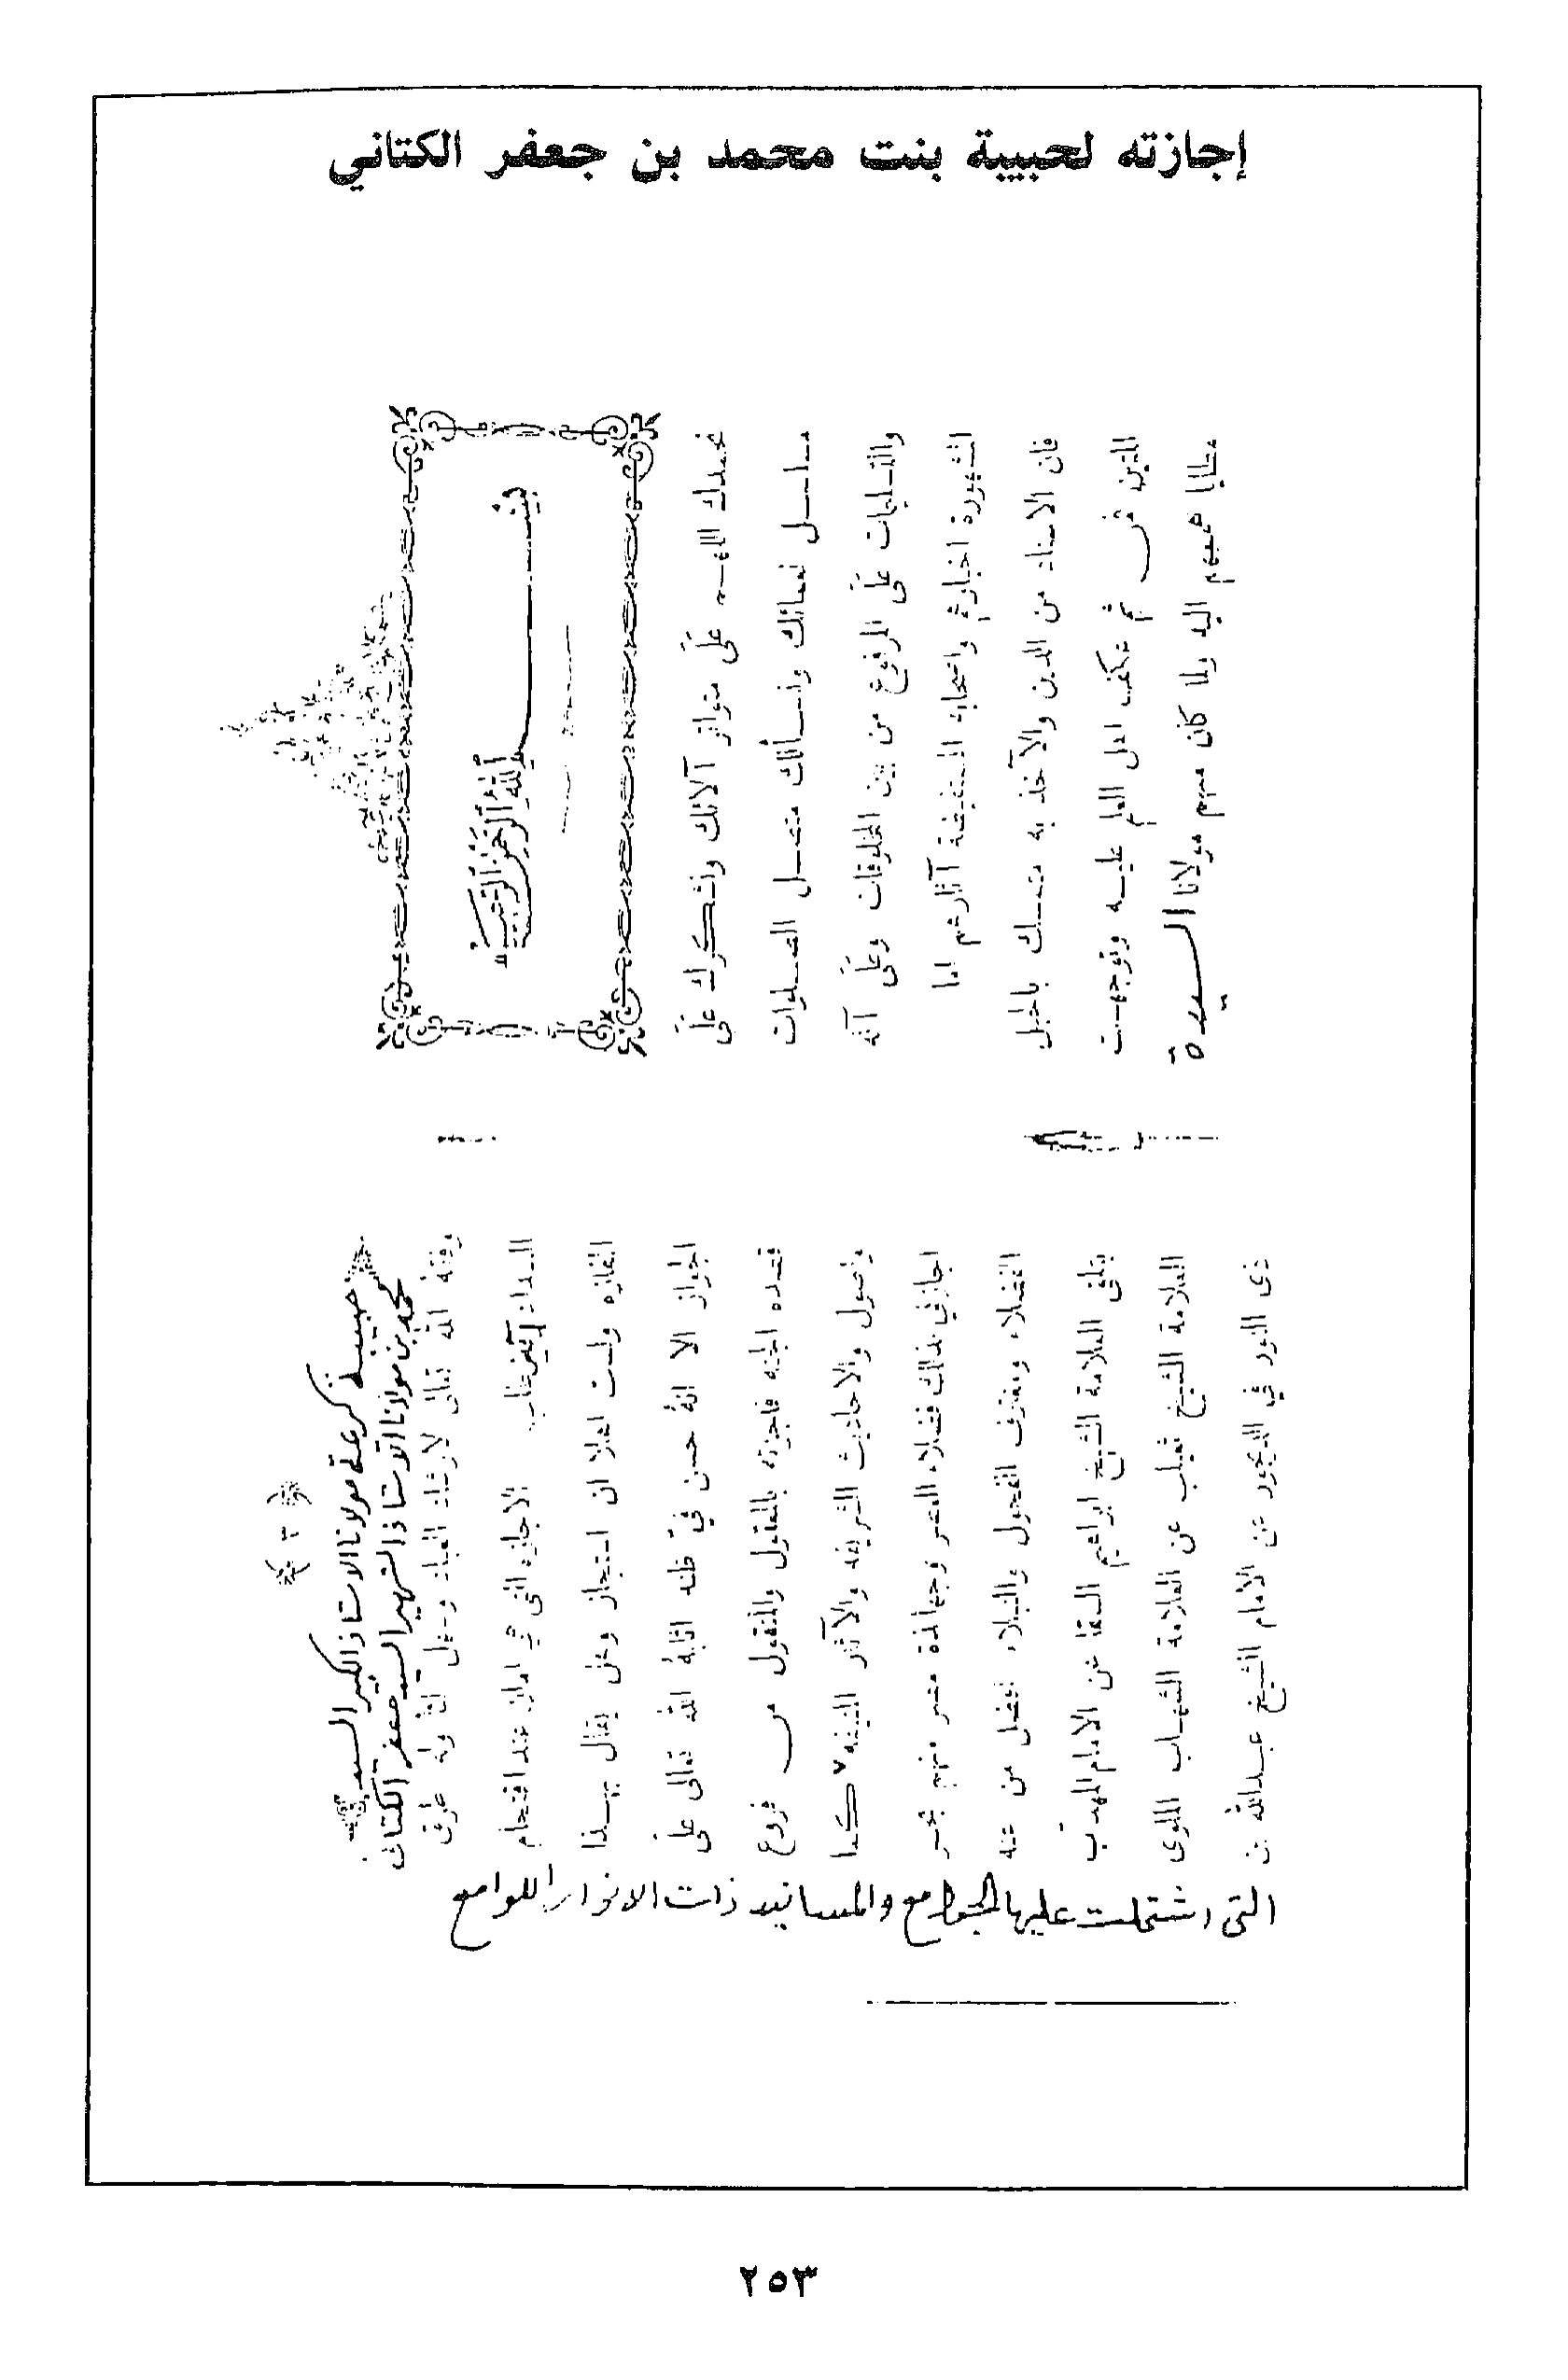 إجازته لحبيبة بنت محمد بن جعفر الكتاني
بسم الله الرحمن الرحيم
نحمدك اللهم على متواتر آلائك ونشكرك على
مسلسل نعمائك ونسألك متصل الصلوات
والتسليمات على المرفوع من بين المخلوقات وعلى آله
المشهورة اخبارهم واصحابه المستفيضة آثارهم اما
فان الاسناد من الدين والآخذ به متمسك بالحبل
المتين فمن ثم عكف اهل العلم عليه وتوجهت
مطايا هممهم اليه ولما كان منهم مولانا السيدة
﴿ ٣ ﴾
حبيبة كريمة مولانا الاستاذ الكبير السيد
محمد بن مولانا الاستاذ الشهير السيد جعفر الكتاني
وفقه الله تعالى لارشاد العباد وسهل لنا وله طرق
السداد آمين طلب الاجازة التي هي امان عند اقتحام
المفازه ولست اهلا ان استجاز وهل يقال بهذا
الجواز الا انه حسن في ظنه اثابه الله تعالى على
قصده الجنه فاجزته بالمعقول والمنقول من فروع
واصول والاحاديث الشريفه والآثار المنيفه كما
اجازني بذلك فضلاء العصر وجهابذة مصر منهم بحر
الفضلاء ومغترف الفحول والنبلاء افضل من عنه
يتلقى العلامة الشيخ ابراهيم السقا عن الامام المهذب
العلامة الشيخ ثعيلب عن العلامة الشهاب الملوى
ذى النور في الديجور عن الامام الشيخ عبدالله بن
التى اشتملت عليها الجوامع والمسانيد ذات الانوار اللوامع
٢٥٣